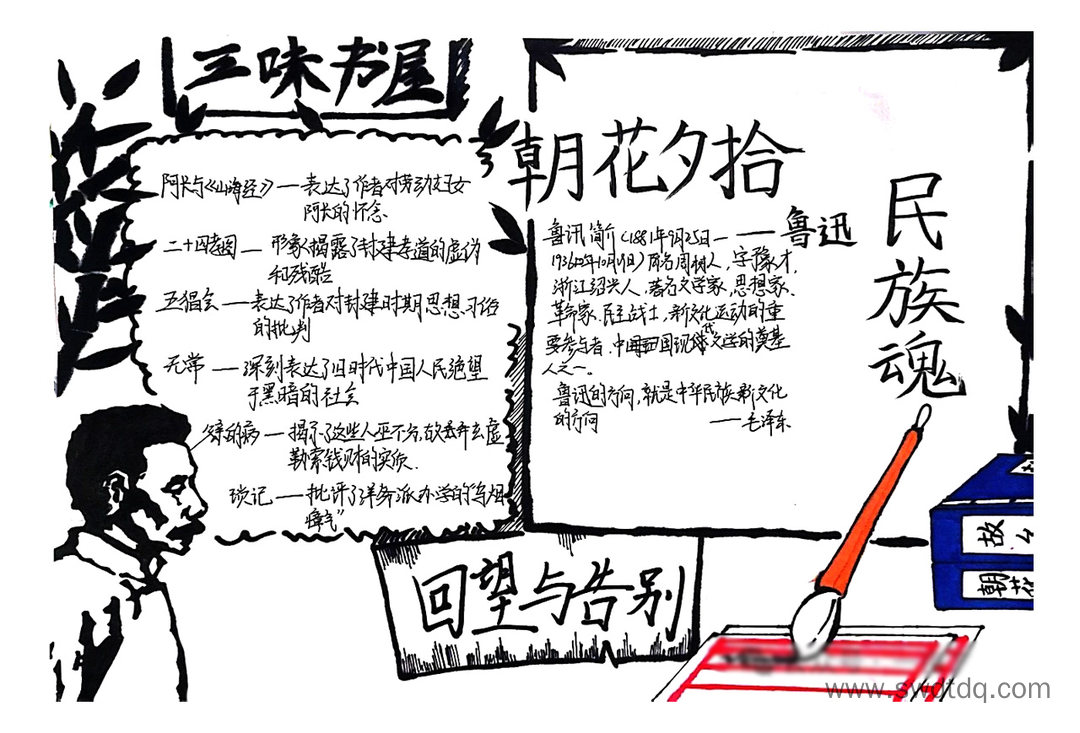 三味书屋
阿长与《山海经》—表达了作者对劳动妇女
阿长的怀念
二十四孝图—形象揭露了封建孝道的虚伪
和残酷
五猖会—表达了作者对封建时期思想习俗
的批判
无常—深刻表达了旧时代中国人民绝望
于黑暗的社会
父亲的病—揭示了这些人巫不分,故弄玄虚
勒索钱财的实质.
琐记—批评了洋务派办学的“乌烟
瘴气”
朝花夕拾
——鲁迅
鲁迅简介(1881年9月25日—
1936年10月19日)原名周树人,字豫才,
浙江绍兴人.著名文学家,思想家、
革命家.民主战士,新文化运动的重
要参与者.中国现代文学的奠基
人之一。
鲁迅的方向,就是中华民族新文化
的方向
——毛泽东
民族魂
回望与告别
故
朝花
www.swdtdq.com